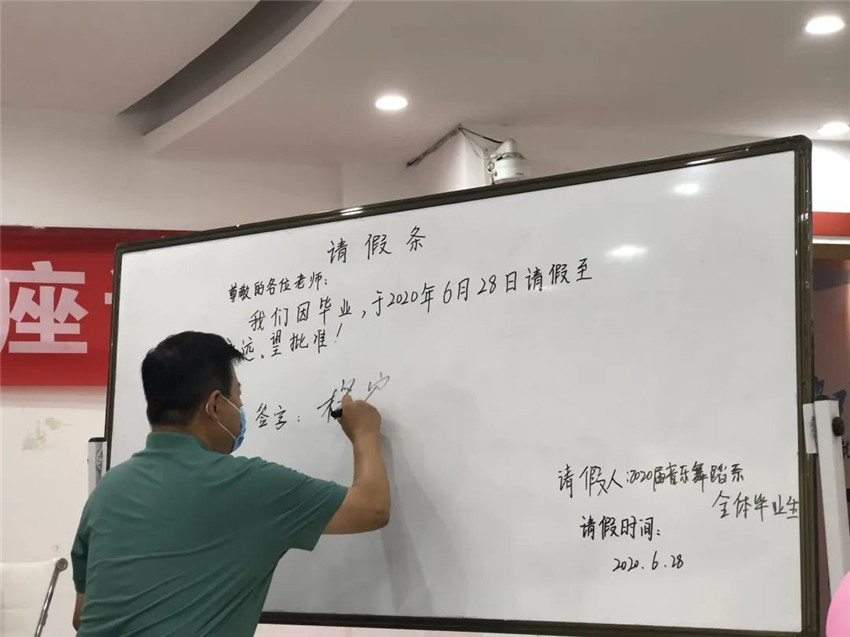 座
请假条
尊敬的各位老师：
我们因毕业，于2020年6月28日请假至
远，望批准！
签言：
请假人：2020届音乐舞蹈系
全体毕业生
请假时间：
2020.6.28